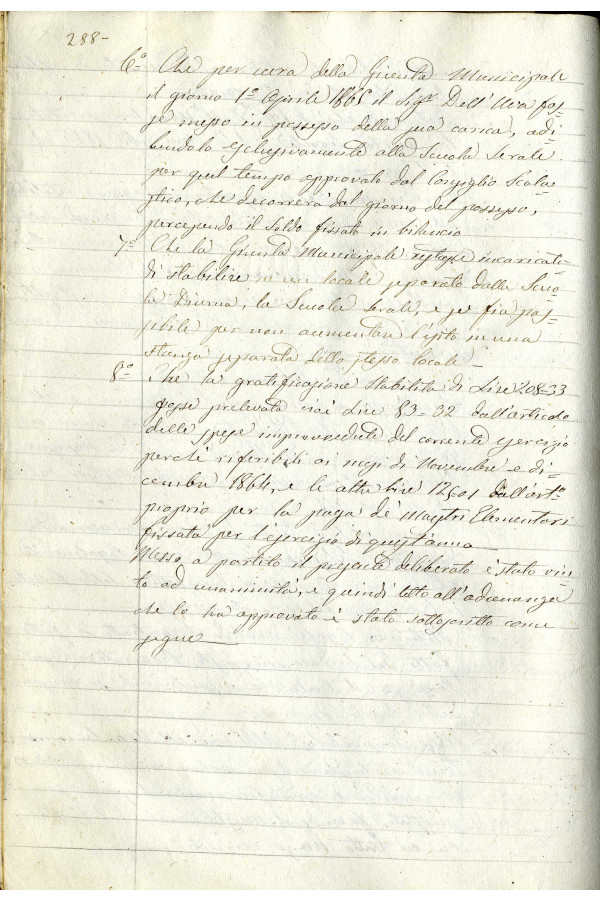 288-
6.° Che per cura della Giunta Municipale
il giorno 1.° Aprile 1865 il Sig.r Dell'Uva fos=
se messo in possesso della sua carica, adi=
bendolo esclusivamente alla Scuola Serale
per quel tempo approvato dal Consiglio Scola=
stico, che decorrerà dal giorno del possesso,
percependo il soldo fissato in bilancio
7.° Che la Giunta Municipale restasse incaricata
di stabilire in un locale separato dalla Scuo=
la Diurna, la Scuola Serale, e se fia pos=
sibile per non aumentare l'esito in una
stanza separata dello stesso locale_
8.° Che la gratificazione stabilita di Lire 208=33
fosse prelevata cioè Lire 83=32 dall'articolo
delle spese imprevedute del corrente esercizio
perchè riferibili ai mesi di Novembre e di=
cembre 1864, e le altre lire 125=01 dall'art.°
proprio per la paga de' Maestri Elementari
fissata per l'esercizio di quest'anno
Messo a partito il presente deliberato è stato vin=
to ad unanimità, e quindi letto all'adunanza
che lo ha approvato è stato sottoscritto come
segue